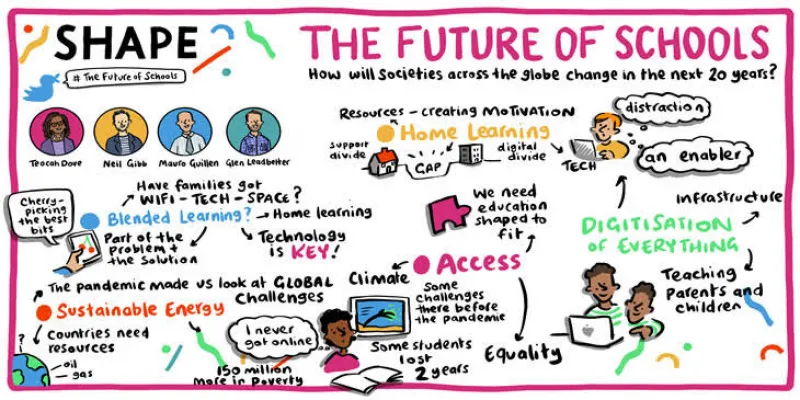 SHAPE
# The Future of Schools
THE FUTURE OF SCHOOLS
How will societies across the globe change in the next 20 years?
Teocah Dove
Neil Gibb
Mauro Guillen
Glen Leadbetter
Resources - creating MOTIVATION
Home Learning
support
divide
GAP
digital
divide
TECH
distraction
an enabler
Have families got
WIFI - TECH - SPACE?
Cherry-
picking
the best
bits
Blended Learning? → Home learning
Part of the
Problem +
the Solution
Technology
is KEY!
We need
education
shaped to
fit
Infrastructure
DIGITISATION
OF EVERYTHING
Teaching
Parents and
children
The pandemic made us look at GLOBAL
Challenges
Climate
Access
Some
challenges
there before
the pandemic
Sustainable Energy
Countries need
resources
?
oil
gas
I never
got online
150 million
more in Poverty
Some students
lost
2 years
Equality